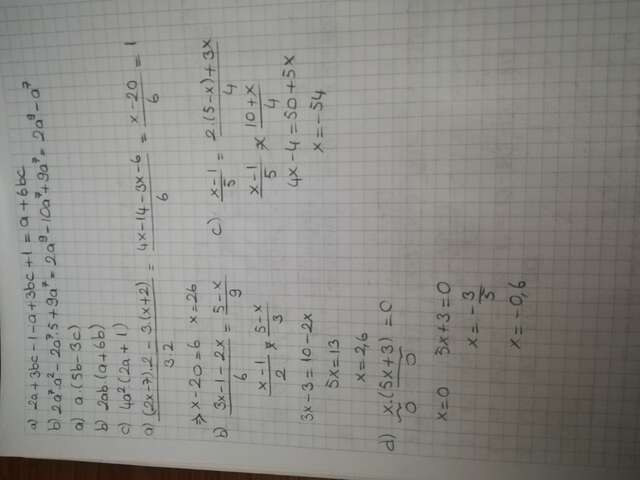 a) 2a+3bc-1-a+3bc+1=a+6bc
b) 2a⁷·a²-2a⁷·5+9a⁷=2a⁹-10a⁷+9a⁷=2a⁹-a⁷
a) a·(5b-3c)
b) 2ab(a+6b)
c) 4a²(2a+1)
a) ((2x-7)·2-3·(x+2))/(3·2) = (4x-14-3x-6)/6 = (x-20)/6 = 1
⇒ x-20=6 x=26
b) (3x-1-2x)/6 = (5-x)/9
(x-1)/2 × (5-x)/3
3x-3=10-2x
5x=13
x=2,6
c) (x-1)/5 = (2·(5-x)+3x)/4
(x-1)/5 × (10+x)/4
4x-4=50+5x
x=-54
d) x·(5x+3)=0
0 0
x=0 5x+3=0
x=-3/5
x=-0,6